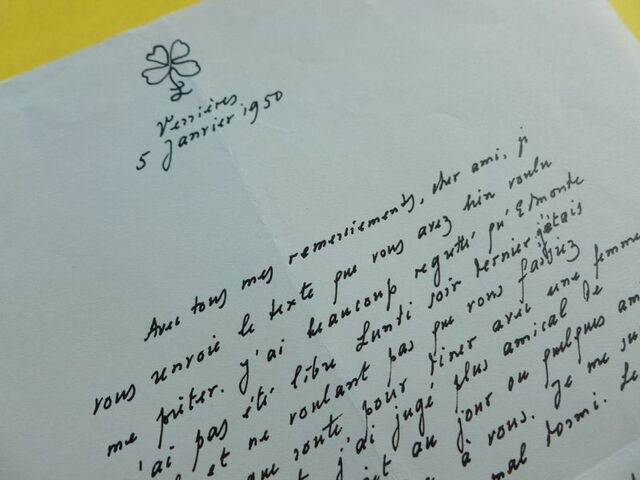 L
Verrières
5 Janvier 1950
Avec tous mes remerciements, cher ami, je
vous renvoie le texte que vous avez bien voulu
me prêter. J'ai beaucoup regretté qu'Edmonde
n'ai pas été libre Lundi soir dernier j'étais
et ne voulant pas que vous fassiez
route pour dîner avec une femme
j'ai jugé plus amical de
au jour où quelques am
à vous. Je me su
mal dormi. Le